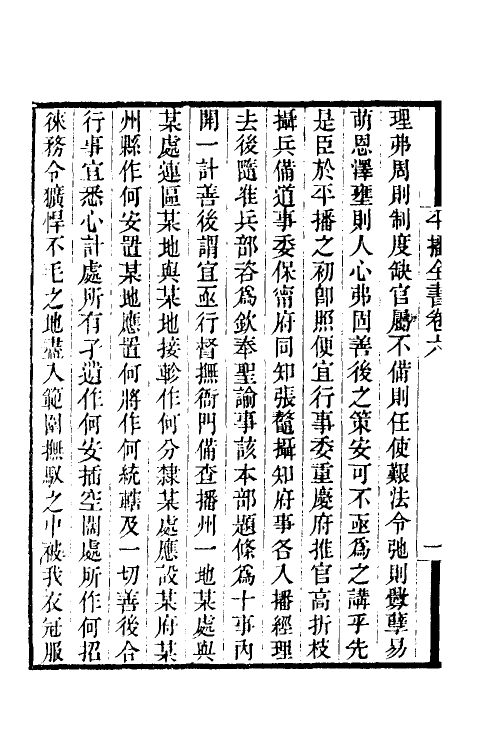 平播全書卷六
一
理弗周則制度缺官屬不備則任使艱法令弛則孽易
萌恩澤壅則人心弗固善後之策安可不亟爲之講乎先
是臣於平播之初卽照便宜行事委重慶府推官高折枝
攝兵備道事委保甯府同知張鼇攝知府事各入播經理
去後隨准兵部咨爲欽奉聖諭事該本部題條爲十事內
開一計善後謂宜亟行督撫衙門備查播州一地某處與
某處連區某地與某地接軫作何分隸某處應設某府某
州縣作何安置某地應置何將作何統轄及一切善後合
行事宜悉心計處所有孑遺作何安插空閑處所作何招
徠務令獷悍不毛之地盡入範圍撫馭之中被我衣冠服